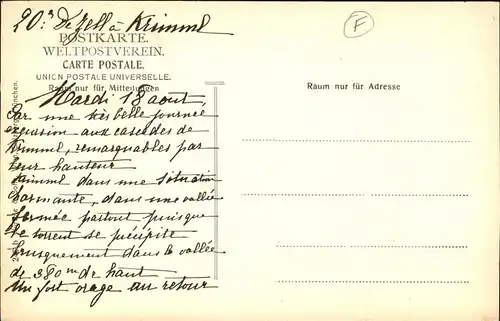 20.3 De Zell à Krimml
F
POSTKARTE.
WELTPOSTVEREIN.
CARTE POSTALE.
UNION POSTALE UNIVERSELLE.
Raum nur für Mitteilungen
Raum nur für Adresse
Mardi 18 aout,
Par une très belle journée
excursion aux cascades de
Krimml, remarquables par
leur hauteur
Krimml dans une situation
charmante, dans une vallée
fermée partout puisque
le torrent se précipite
brusquement dans la vallée
de 380m de haut
Un fort orage au retour